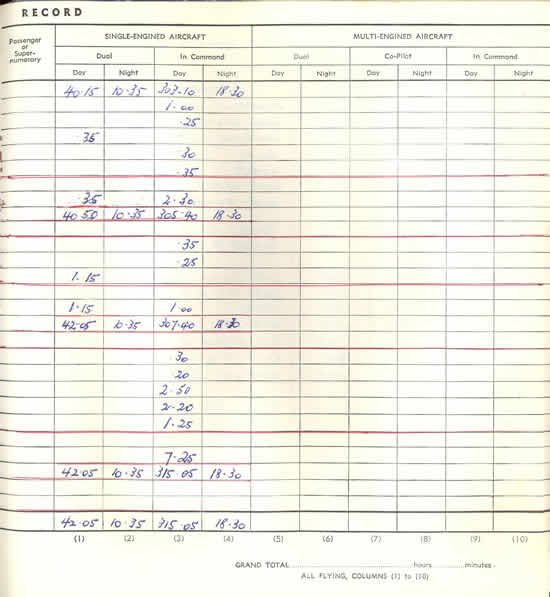 RECORD
Passenger or Super-numerary SINGLE-ENGINED AIRCRAFT MULTI-ENGINED AIRCRAFT
Dual In Command Dual Co-Pilot In Command
Day Night Day Night Day Night Day Night Day Night
40.15 10.35 303-10 18.30
1.00
.25
.35
30
.35
.35 2.30
40 50 10.35 305-40 18.30
.35
.25
1.15
1.15 1.00
42.05 10.35 307.40 18.30
.30
.20
2.50
2-20
1.25
7.25
42.05 10.35 315.05 18.30
42.05 10.35 315.05 18.30
(1) (2) (3) (4) (5) (6) (7) (8) (9) (10)
GRAND TOTAL hours minutes
ALL FLYING, COLUMNS (1) to (10)